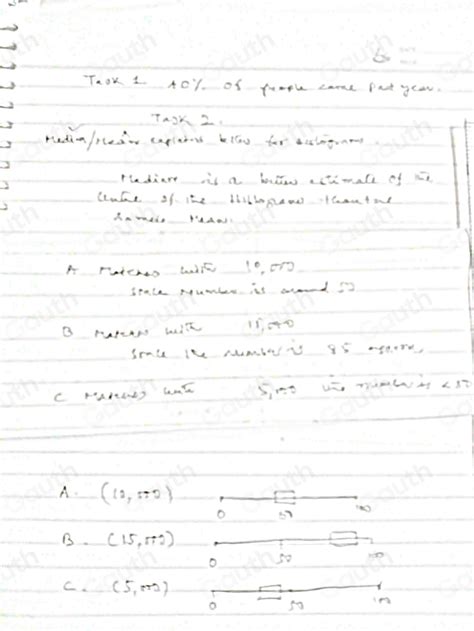 Task 1 40% of people came past year.
Task 2.
Median/Mean explains better for histograms.
Median is a better estimate of the
Centre of the Histogram than the
Mean.
A Matches with 10,000
since number is around 50
B Matches with 15,000
since the number is 85 approx,
C Matches with 5,000 the number is < 50
A. (10,000)
0 50 100
B. (15,000)
0 50 100
C. (5,000)
0 50 100
Gauth